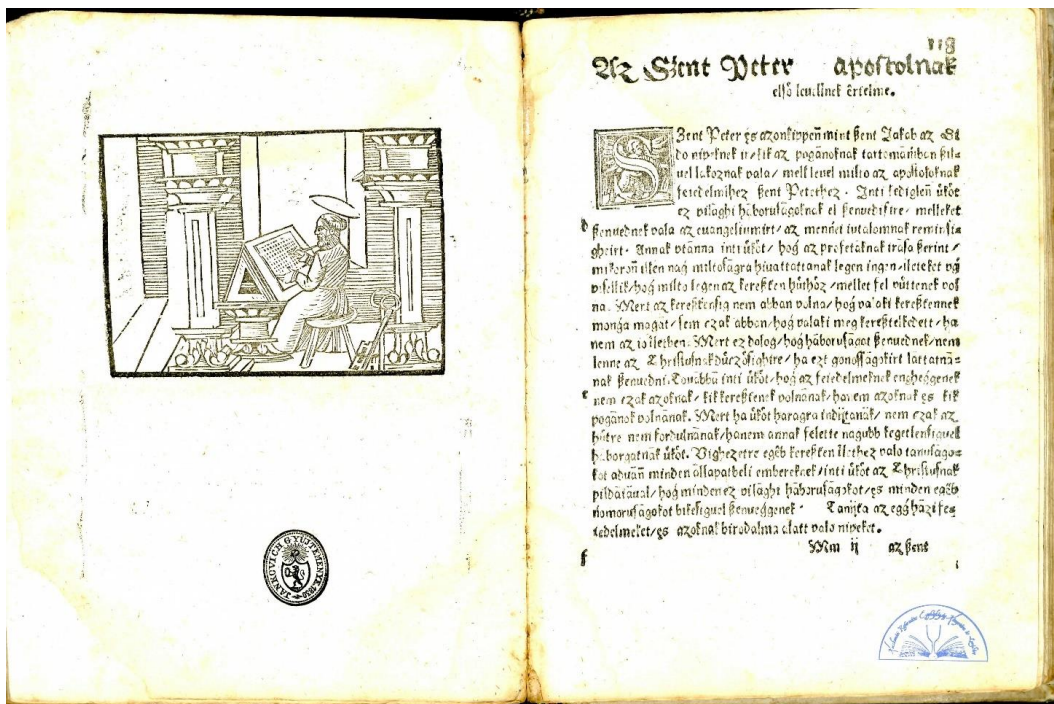 JANKOVICH GYÜJTEMENYE. 1830
118
Az Szent Peter apostolnak
elsö leuelinek értelme.
SZent Peter es azonkippen mint ßent Jakob az Si
do nipeknek ir/ kik az pogánoknak tartomańiban ßil=
uel lakoznak vala/ mell leuel milto az apostoloknak
feiedelmihez ßent Peterhez. Inti kediglen ükot
ez vilaghi haborusagoknak el ßenuedisire, melleket
b
ßenuednek vala az euangeliumirt/ az mennei iutalomnak remińsi=
gheirt. Annak vtanna inti ükot/ hog az profetaknak irasa ßerint/
mikoron illen nag miltosagra hiuattattanak legen ingen/ ileteket vg
viselliek/ hog milto legen az kereßten hüthöz/ mellet fel vüttenek vol
na. Mert az kereßtensig nem abban volna/ hog valaki kereßtennek
monga magat/ sem czak abban/ hog valaki meg kereßtelkedett/ ha
nem az io iletben. Mert ez dolog/ hog haborusagot ßenuednek/ nem
lenne az Christusnak düczösighire/ ha ezt gonossagokirt lattatná=
nak ßenuedni. Touabbá inti ükot/ hog az feiedelmeknek engheggenek
c
nem czak azoknak/ kik kereßtenek volnának/ hanem azoknak es kik
pogánok volnanak. Mert ha ükot haragra inditanák/ nem czak az
hütre nem fordulnanak/ hanem annak felette nagubb kegetlensiguel
haborgatnák ükot. Vighezetre egeb kereßten ilethez valo tanusago=
kot aduán minden allapatbeli embereknek/ inti ükot az Christusnak
pildaiaual/ hog minden ez vilaghi haborusagokot/ es minden egeb
nomorusagokot bikesiguel ßenueggenek. Tanijta az egghazi fe=
iedelmeket/ es azoknak birodalma alatt valo nipeket.
f
Mm ij az ßent